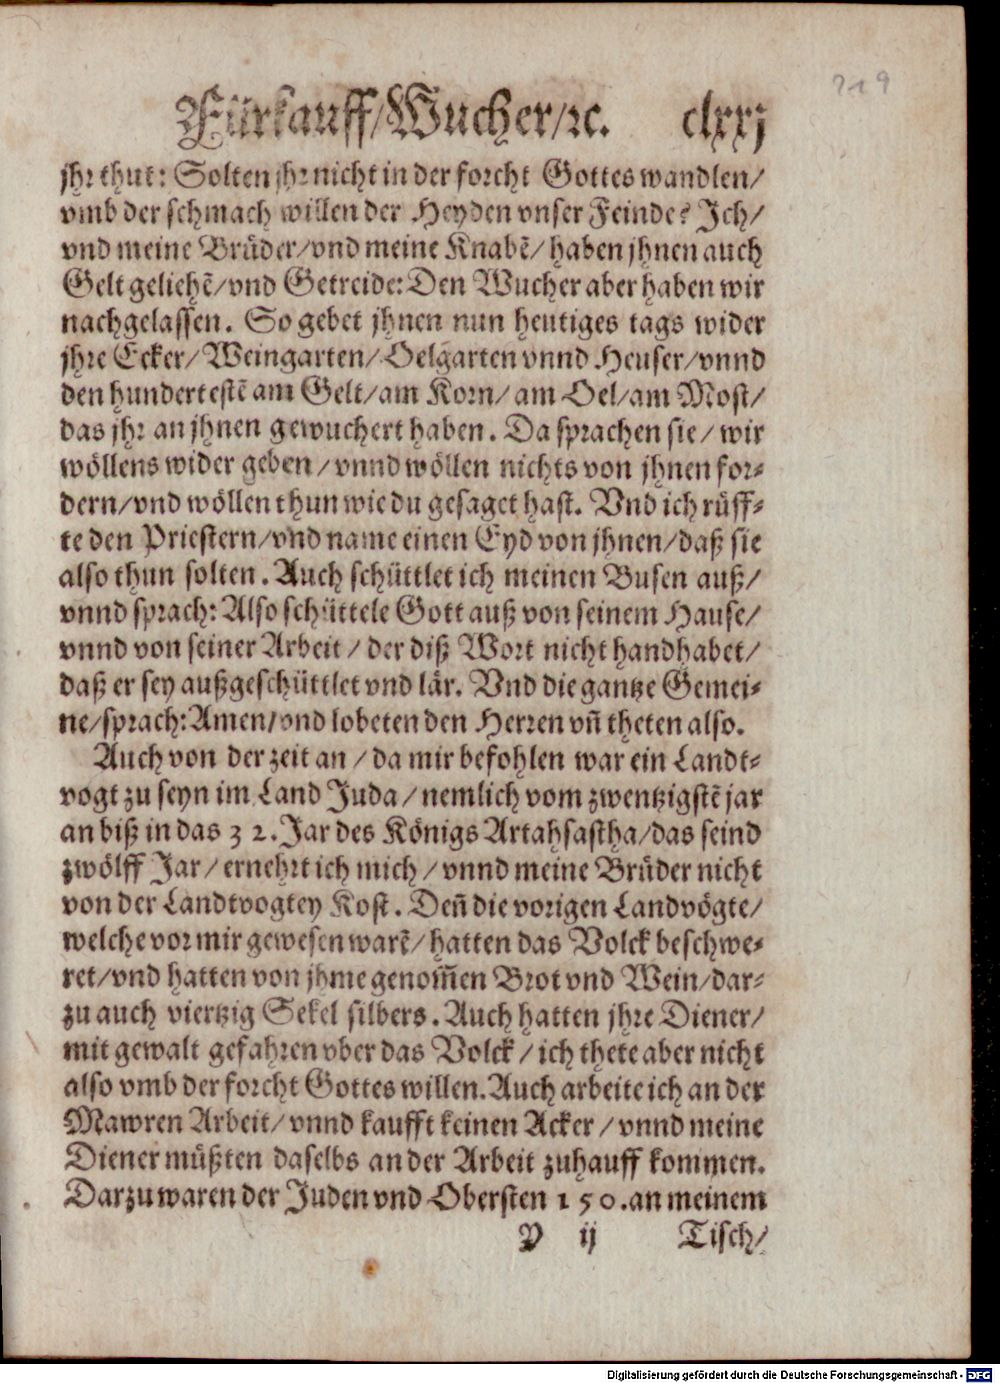 219
Fürkauff/Wucher/ꝛc. clxxj
jhr thut: Solten jhr nicht in der forcht Gottes wandlen/
vmb der schmach willen der Heyden vnser Feinde? Ich/
vnd meine Brüder/vnd meine Knabẽ/ haben jhnen auch
Gelt geliehẽ/vnd Getreide: Den Wucher aber haben wir
nachgelassen. So gebet jhnen nun heutiges tags wider
jhre Ecker/ Weingarten/ Oelgarten vnnd Heuser/vnnd
den hundertestẽ am Gelt/am Korn/ am Oel/am Most/
das jhr an jhnen gewuchert haben. Da sprachen sie/ wir
wöllens wider geben/vnnd wöllen nichts von jhnen for-
dern/vnd wöllen thun wie du gesaget hast. Vnd ich rüff-
te den Priestern/vnd name einen Eyd von jhnen/daß sie
also thun solten. Auch schüttlet ich meinen Busen auß/
vnnd sprach: Also schüttele Gott auß von seinem Hause/
vnnd von seiner Arbeit/ der diß Wort nicht handhabet/
daß er sey außgeschüttlet vnd lär. Vnd die gantze Gemei-
ne/sprach: Amen/vnd lobeten den Herren vñ theten also.
Auch von der zeit an/ da mir befohlen war ein Landt-
vogt zu seyn im Land Juda/ nemlich vom zwentzigstẽ jar
an biß in das 32. Jar des Königs Artahsastha/das seind
zwölff Jar/ ernehrt ich mich/ vnnd meine Brüder nicht
von der Landtvogtey Kost. Deñ die vorigen Landvögte/
welche vor mir gewesen warẽ/ hatten das Volck beschwe-
ret/vnd hatten von jhme genom̃en Brot vnd Wein/dar-
zu auch viertzig Sekel silbers. Auch hatten jhre Diener/
mit gewalt gefahren vber das Volck/ ich thete aber nicht
also vmb der forcht Gottes willen. Auch arbeite ich an der
Mawren Arbeit/ vnnd kaufft keinen Acker/ vnnd meine
Diener müßten daselbs an der Arbeit zuhauff kommen.
Darzu waren der Juden vnd Obersten 150. an meinem
Y ij Tisch/
Digitalisierung gefördert durch die Deutsche Forschungsgemeinschaft - DFG